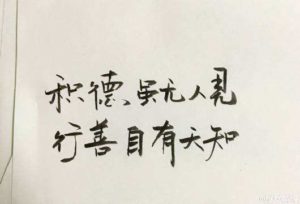 积德虽无人见
行善自有天知